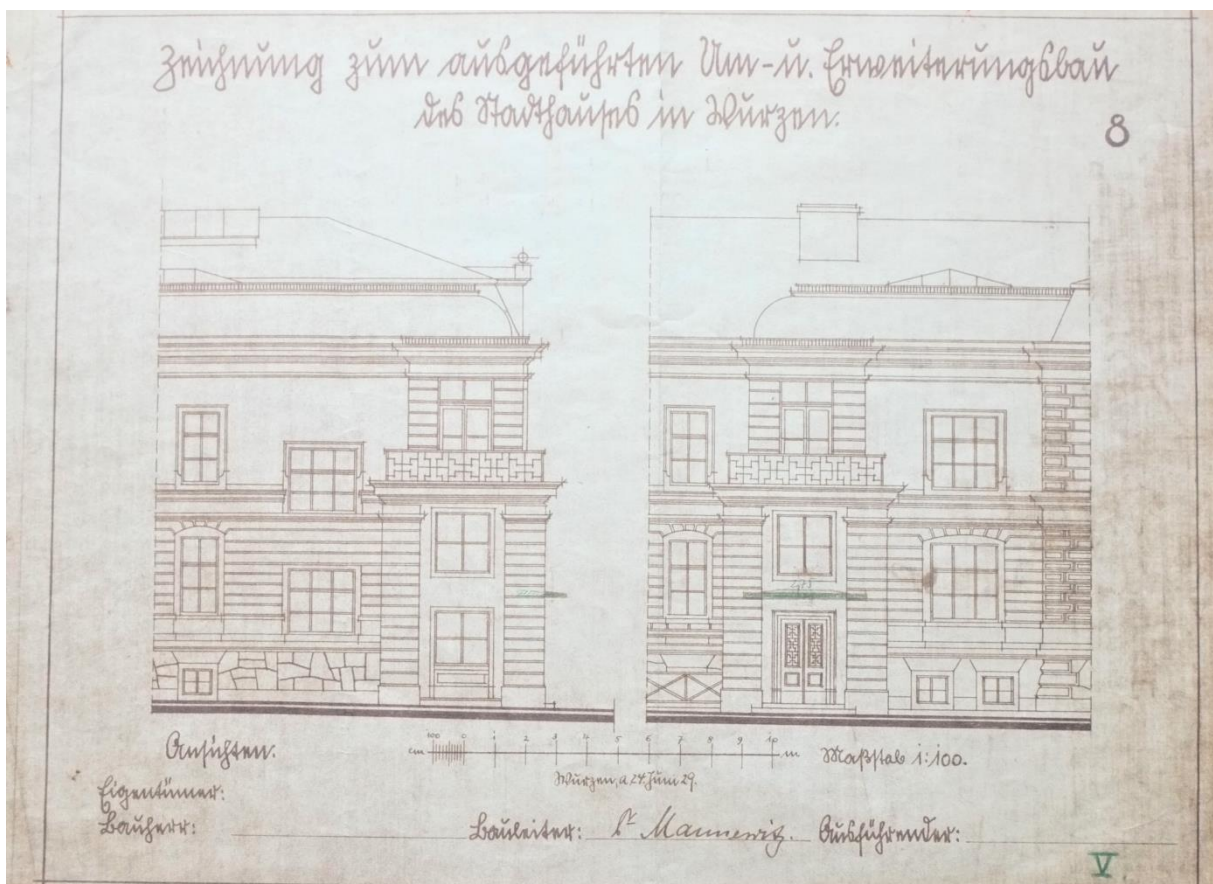 Zeichnung zum ausgeführten Um- u. Erweiterungsbau
des Stadthauses in Wurzen.
8
Ansichten.
cm 100 0 1 2 3 4 5 6 7 8 9 10 m
Maßstab 1:100.
Wurzen, a 24. Juni 29.
Eigentümer:
Bauherr:
Bauleiter: Mannewitz. Ausführender:
V